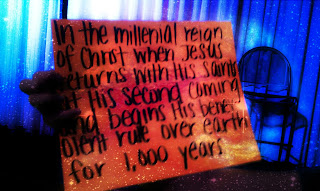 In the millenial reign
of Christ when Jesus
returns with His saints
at His second coming
and begins His benev
olent rule over earth
for 1,000 years